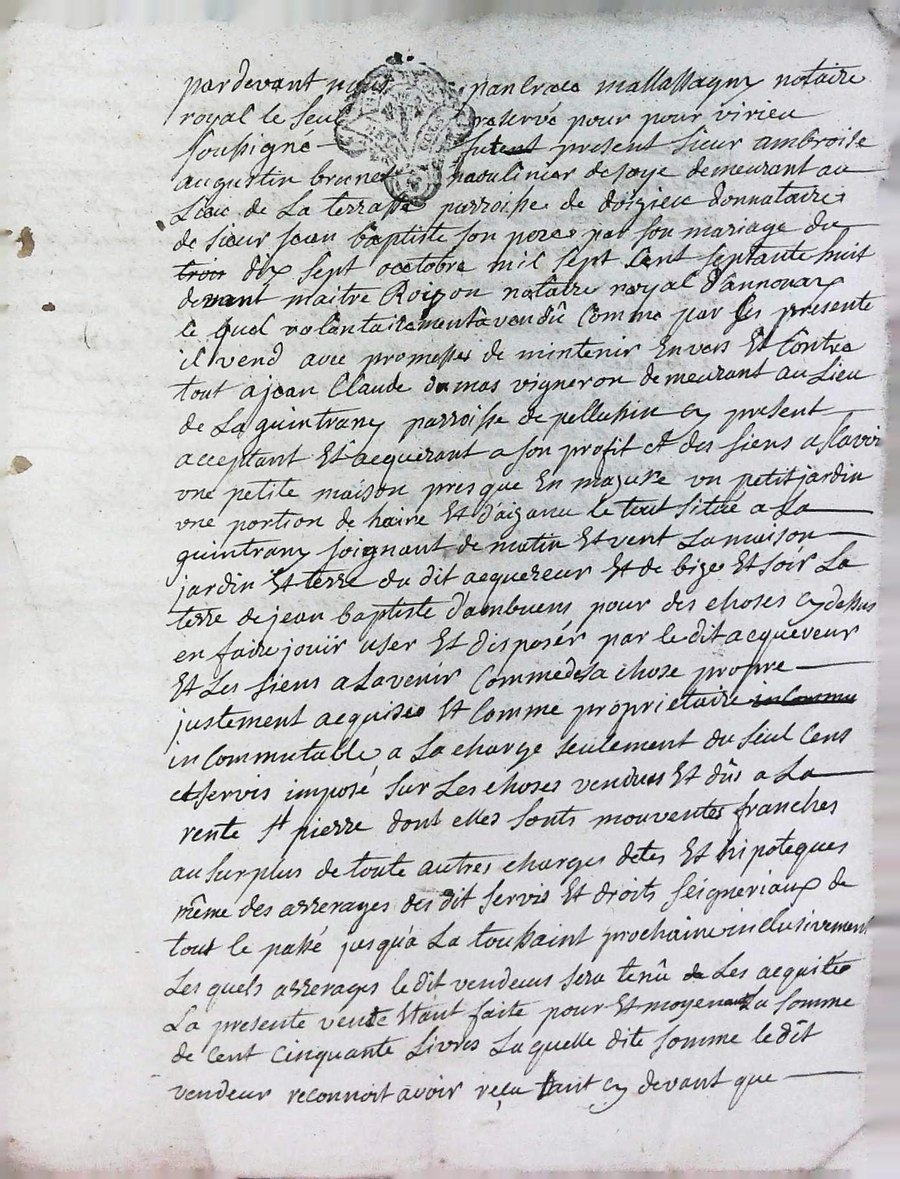 pardevant nous pancrace mallassagny notaire
royal le seul reservé pour pour virieu
soussigné fut present sieur ambroise
augustin brunet moulinier de soye demeurant au
Lieu de La terrasse parroisse de doizieu donnataire
de sieur jean baptiste son pere par son mariage du
trois dix sept octobre mil sept Cent septante huit
devant maitre Roizon notaire royal d'annonay
le quel volontairement a vendû Comme par Ces presente
il vend avec promesse de mintenir Envers Et Contre
tout a jean Claude dumas vigneron demeurant au Lieu
de La guintrany parroisse de pellussin cy present
acceptant Et acquerant a son profit et des siens a sçavoir
une petite maison presque En mazure un petit jardin
une portion de haire Et d'aizance le tout situé a La
guintrany joignant de matin Et vent La maison
jardin Et terre du dit acquereur Et de bize Et soir La
terre de jean baptiste d'ambuens pour des choses cy dessus
en faire jouir user Et disposér par le dit acquereur
Et Les siens a Lavenir Comme de sa chose propre
justement acquise Et Comme proprietaire incommu
incommutable a La charge seulement du seul Cens
et servis imposé sur Les choses vendues Et dûs a La
rente St pierre dont elles sonts mouventes franches
au surplus de toute autres charges detes Et hipoteques
même des arrerages des dit servis Et droits seigneriaux de
tout le passé jusqua La toussaint prochaine inclusivement
Les quels arrerages le dit vendeur sera tenû de Les acquités
La presente vente Etant faite pour Et moyenant La somme
de Cent Cinquante Livres Laquelle dite somme le dît
vendeur reconnoit avoir reçu tant cy devant que